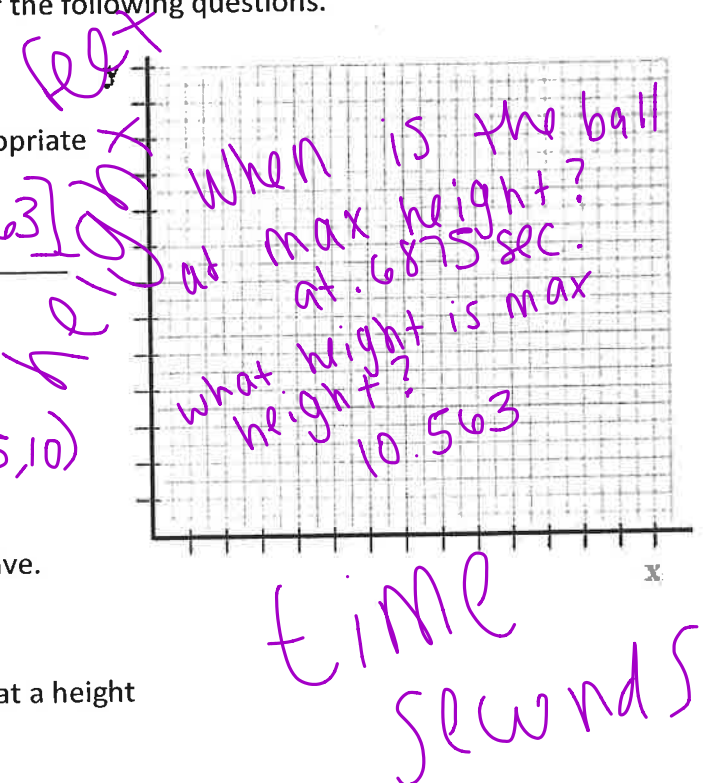 the following questions.
feet
y
opriate
height
.63]
When is the ball
at max height?
at .6875 sec.
what height is max
height?
10.563
5,10)
ve.
x
time
seconds
at a height